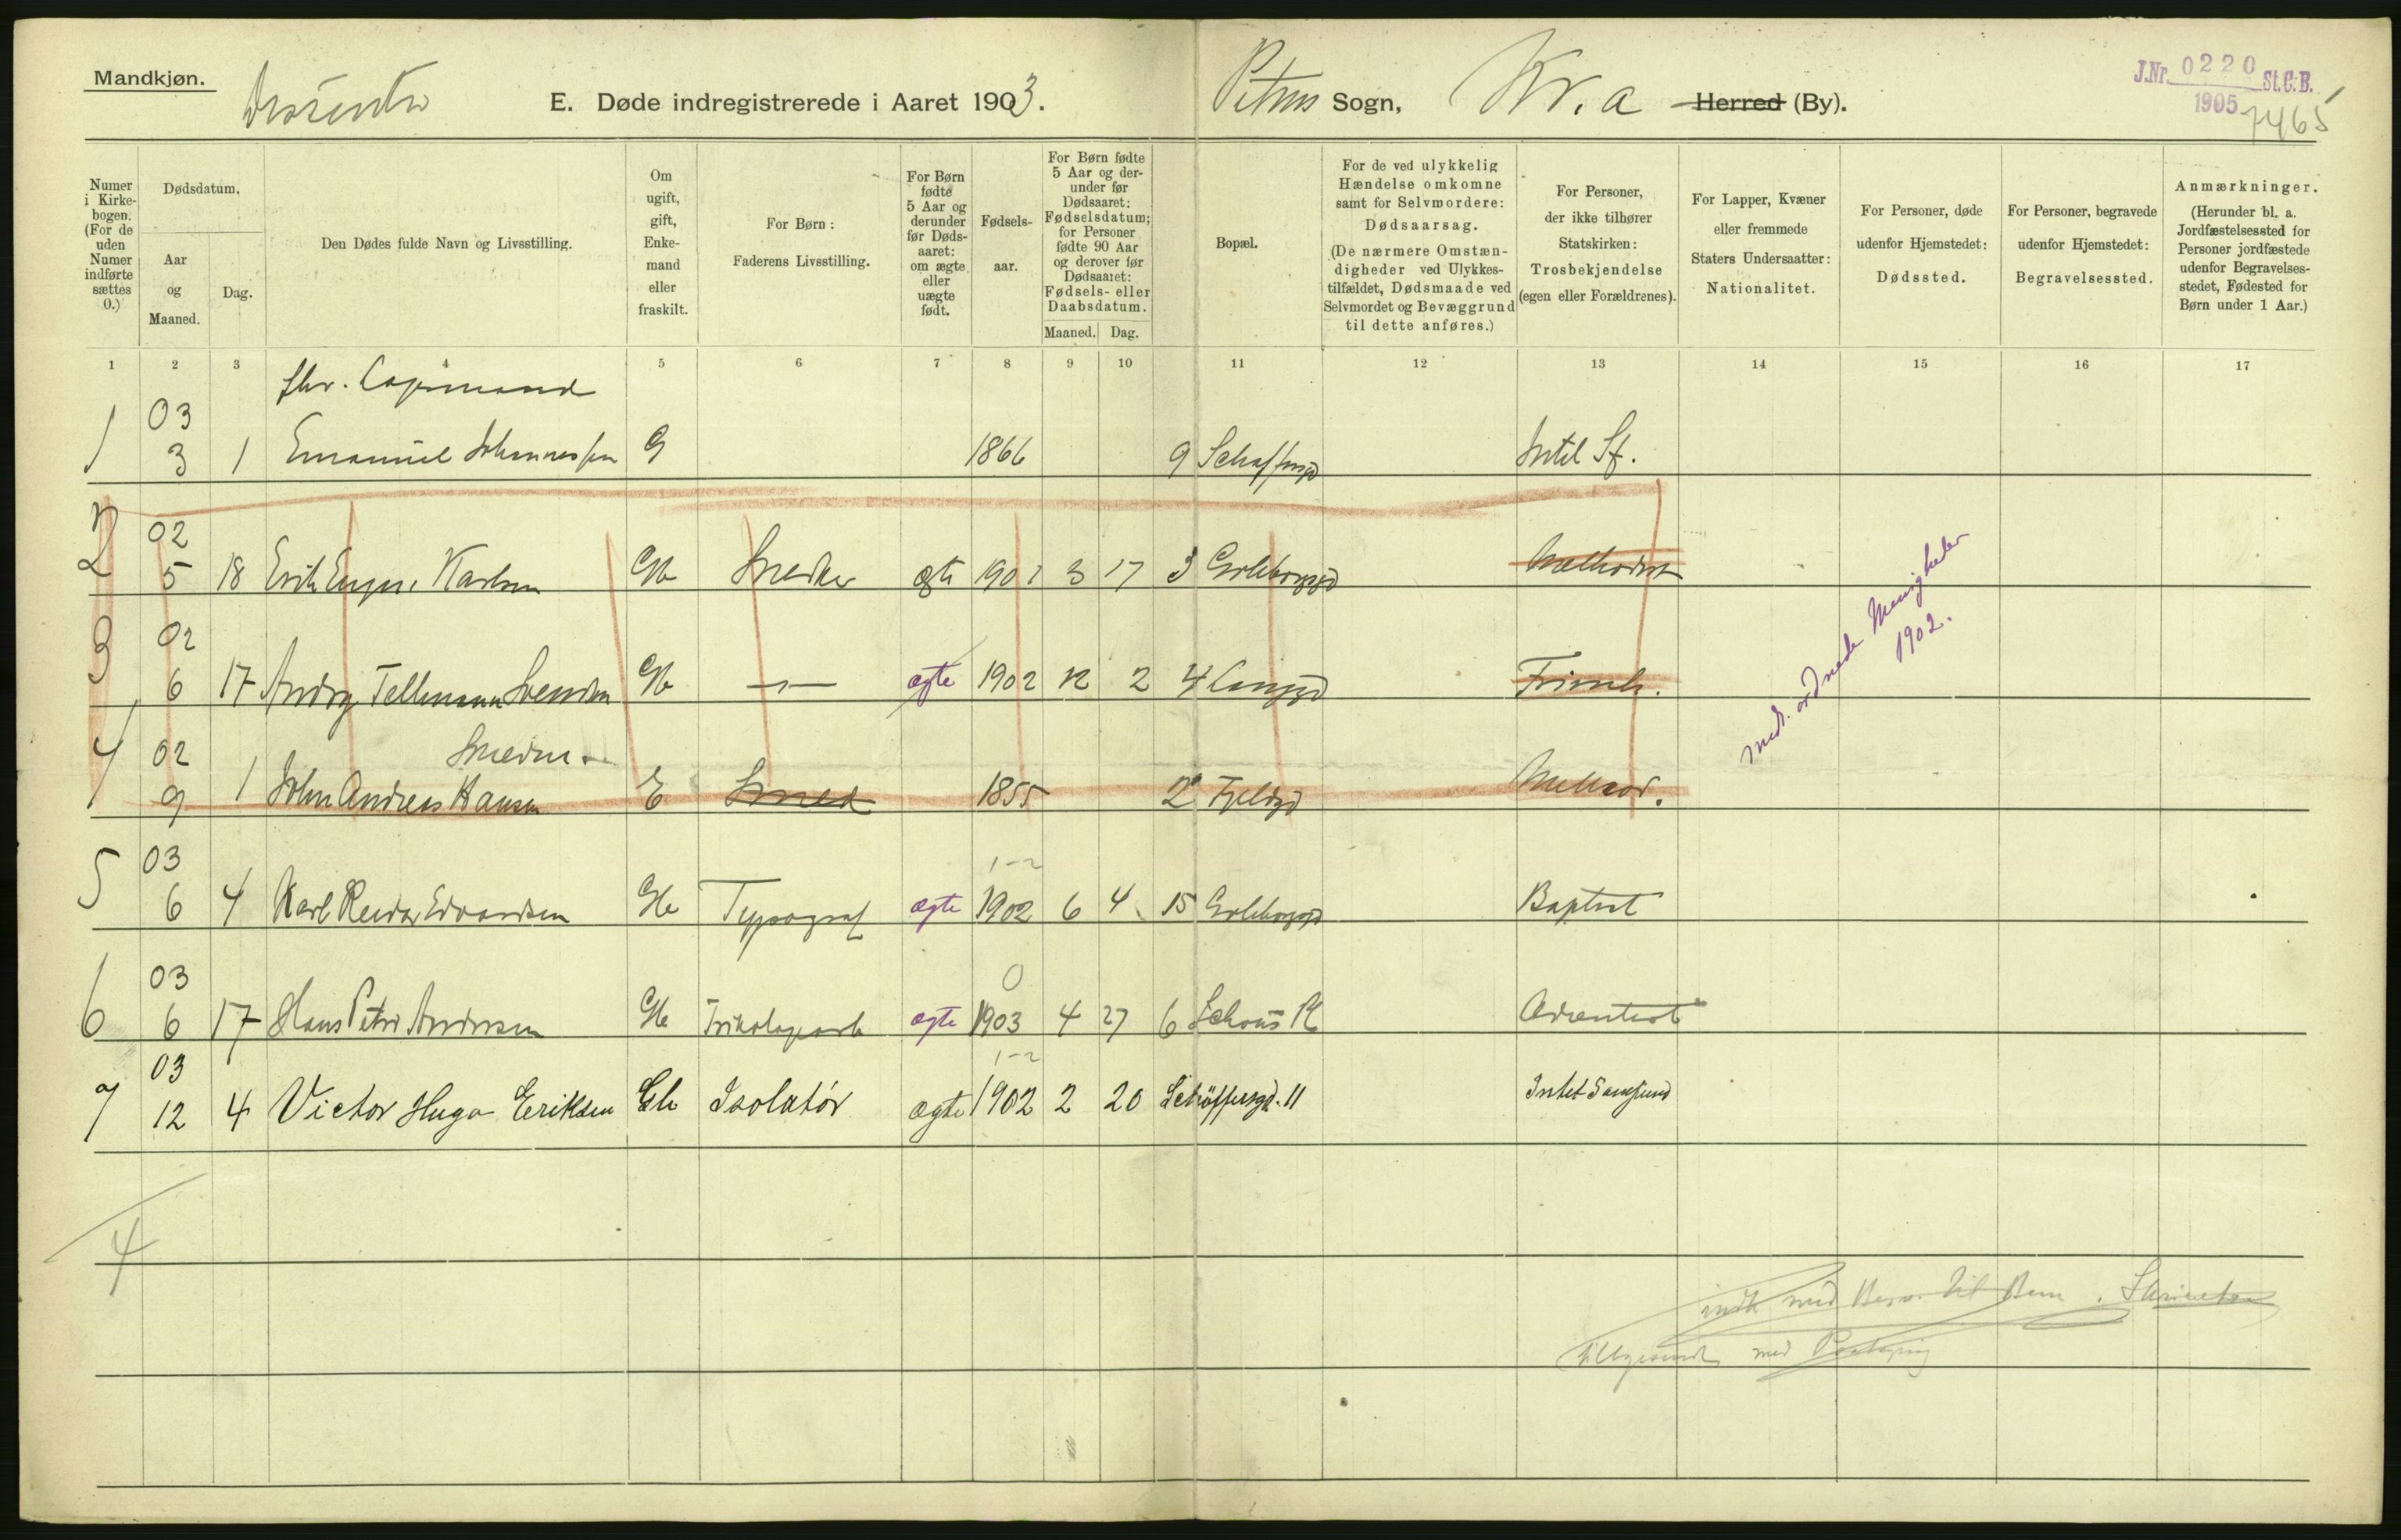 Mandkjøn.
E. Døde indregistrerede i Aaret 1903.
Petrus Sogn, Kr.a Herred (By).
J.Nr. 0220 St.C.B.
1905
7465
Numer i Kirkebogen. (For de uden Numer indførte sættes 0.)
Dødsdatum.
Aar og Maaned.
Dag.
Den Dødes fulde Navn og Livsstilling.
Om ugift, gift, Enkemand eller fraskilt.
For Børn: Faderens Livsstilling.
For Børn fødte 5 Aar og derunder før Dødsaaret: om ægte eller uægte født.
Fødselsaar.
For Børn fødte 5 Aar og derunder før Dødsaaret: Fødselsdatum; for Personer fødte 90 Aar og derover før Dødsaaret: Fødsels- eller Daabsdatum.
Maaned. Dag.
Bopæl.
For de ved ulykkelig Hændelse omkomne samt for Selvmordere: Dødsaarsag. (De nærmere Omstændigheder ved Ulykkestilfældet, Dødsmaade ved Selvmordet og Bevæggrund til dette anføres.)
For Personer, der ikke tilhører Statskirken: Trosbekjendelse (egen eller Forældrenes).
For Lapper, Kvæner eller fremmede Staters Undersaatter: Nationalitet.
For Personer, døde udenfor Hjemstedet: Dødssted.
For Personer, begravede udenfor Hjemstedet: Begravelsessted.
Anmærkninger. (Herunder bl. a. Jordfæstelsessted for Personer jordfæstede udenfor Begravelsesstedet, Fødested for Børn under 1 Aar.)
1 2 3 4 5 6 7 8 9 10 11 12 13 14 15 16 17
03
1 3 1 Emanuel Johannessen G 1866 9
02
2 5 18 Karlsen Snedker 1901 3 17 3 Methodist
02
3 6 17 Svendsen ægte 1902 12 2 4 Frimh.
02
4 9 1 John Andreas Hansen E Smed 1855 2 Method.
Menigheder
1902.
03 1-2
5 6 4 Karl Reidar Edvardsen Typograf ægte 1902 6 4 15 Baptist
03 0
6 6 17 Hans Petter Andersen ægte 1903 4 27 6 Schous Pl Adventist
03 1-2
7 12 4 Victor Hugo Eeriksen Isolatör ægte 1902 2 20 Schöffersgd. 11 Intet Samfund
4